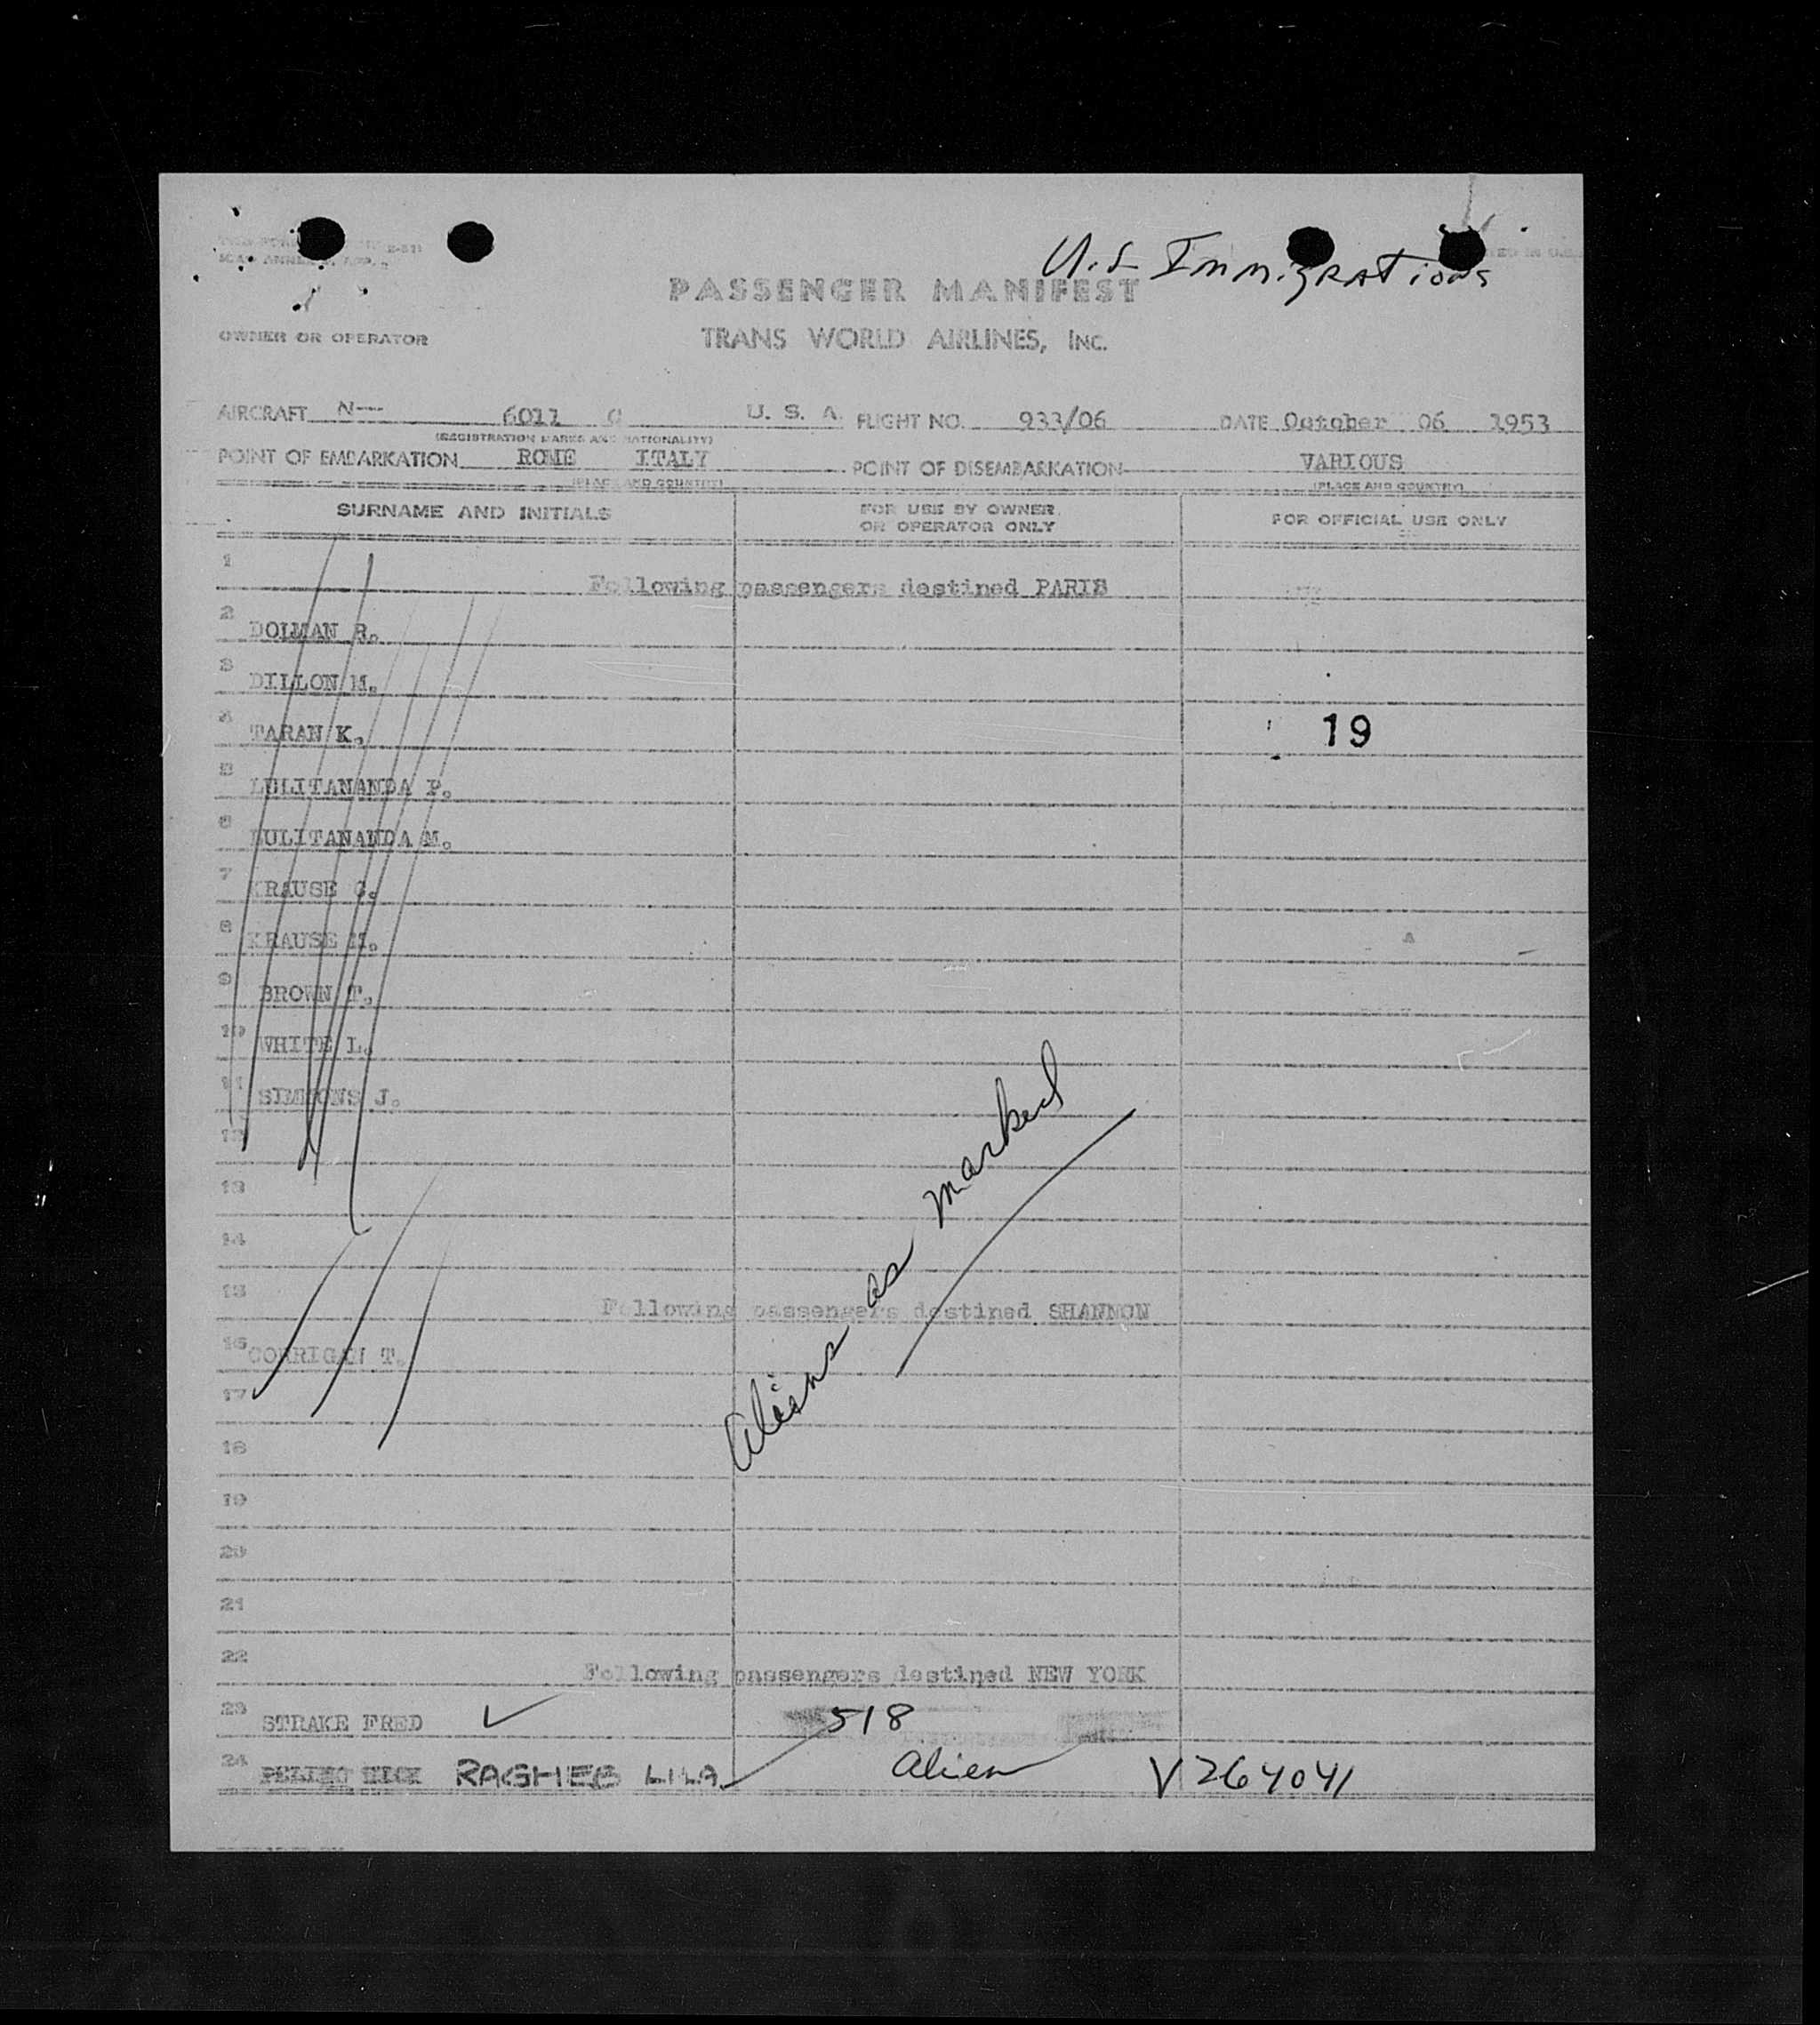 U.S Immigrations
PASSENGER MANIFEST
OWNER OR OPERATOR TRANS WORLD AIRLINES, INC.
AIRCRAFT N-- 6011 C U. S. A. FLIGHT NO. 933/06 DATE October 06 1953
(REGISTRATION MARKS AND NATIONALITY)
POINT OF EMBARKATION ROME ITALY POINT OF DISEMBARKATION VARIOUS
(PLACE AND COUNTRY) (PLACE AND COUNTRY)
SURNAME AND INITIALS FOR USE BY OWNER OR OPERATOR ONLY FOR OFFICIAL USE ONLY
1 Following passengers destined PARIS
2 DOLMAN R.
3 DILLON M.
4 TARAN K. 19
5 LULITANANDA P.
6 LULITANANDA M.
7 KRAUSE C.
8 KRAUSE M.
9 BROWN T.
10 WHITE L.
11 SIMMONS J.
12
13
14
Aliens as marked
15 Following passengers destined SHANNON
16 CORRIGAN T.
17
18
19
20
21
22 Following passengers destined NEW YORK
23 STRAKE FRED 518
24 RAGHEB LILA alien V 264041